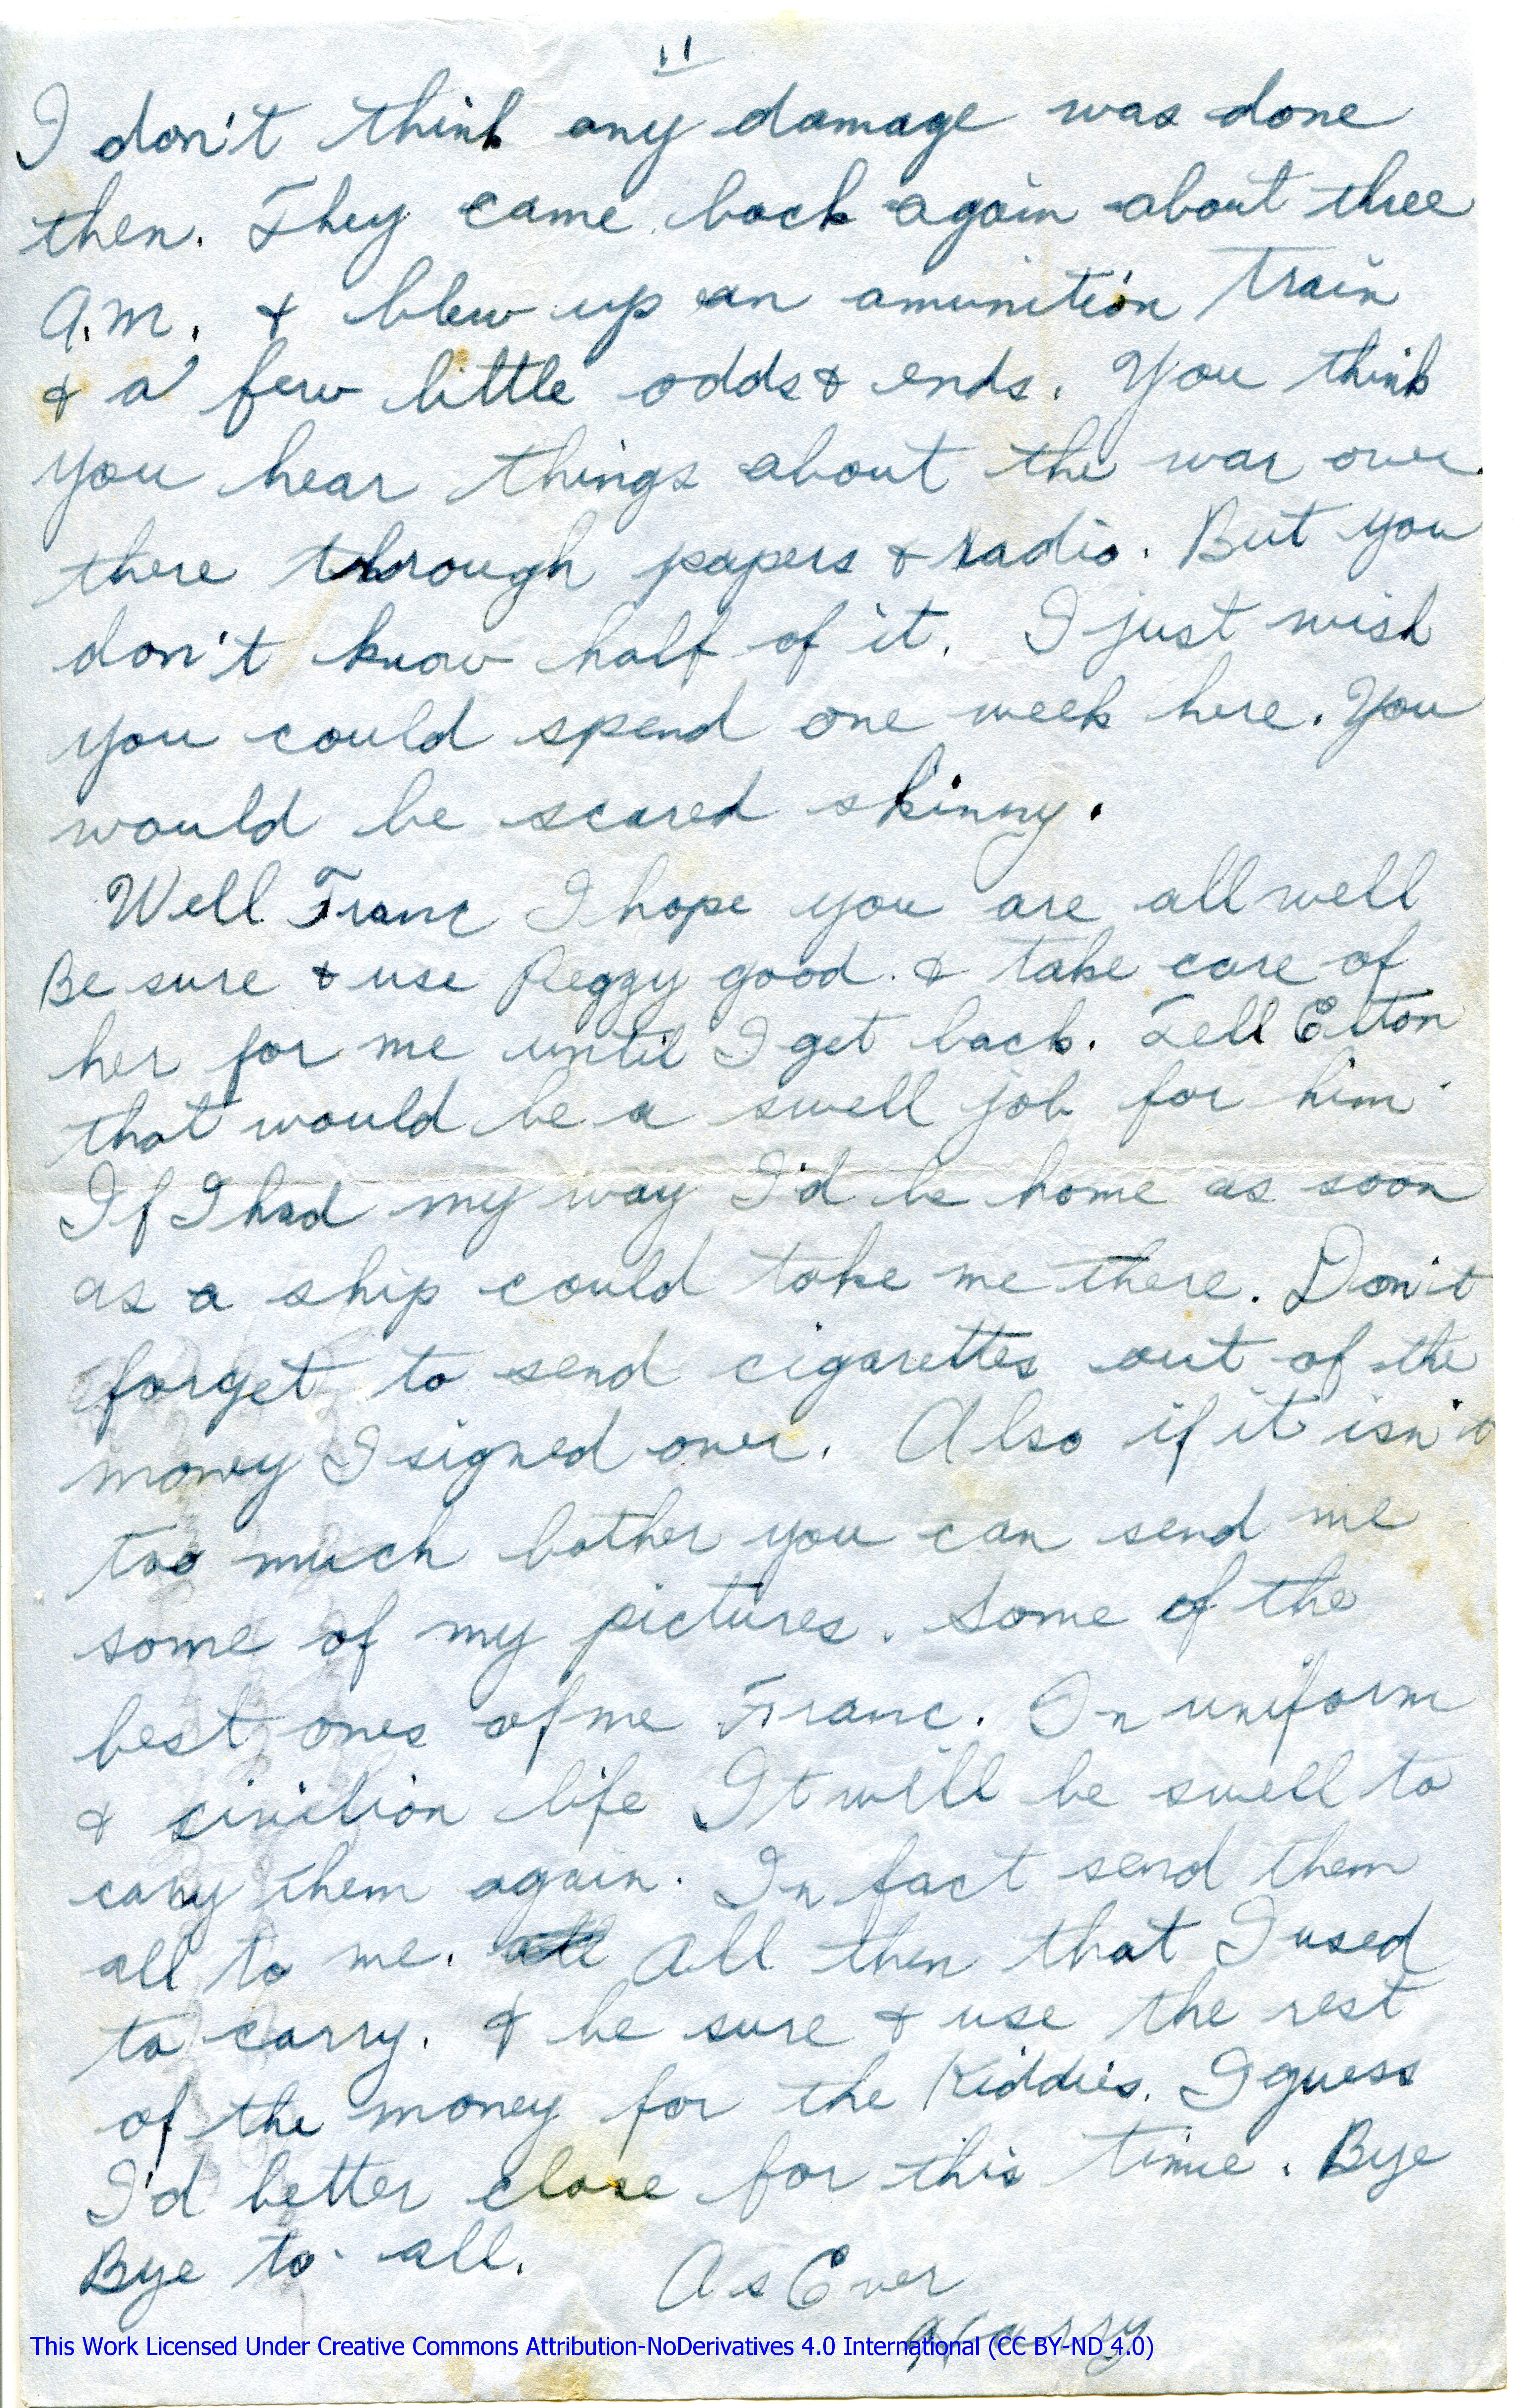 11
I don't think any damage was done
then. They came back again about three
A.M. & blew up an amunition train
& a few little odds & ends. You think
you hear things about the war over
there through papers & radio. But you
don't know half of it. I just wish
you could spend one week here. You
would be scared skinny.
Well Franc I hope you are all well
Be sure & use Peggy good. & take care of
her for me until I get back. Tell Elton
that would be a swell job for him.
If I had my way I'd be home as soon
as a ship could take me there. Don't
forget to send cigarettes out of the
money I signed over. Also if it isn't
too much bother you can send me
some of my pictures. Some of the
best ones of me Franc. In uniform
& civilion life It will be swell to
cary them again. In fact send them
all to me. all All them that I used
to carry. & be sure & use the rest
of the money for the Kiddies. I guess
I'd better close for this time. Bye
Bye to all.
As Ever
Harry
This Work Licensed Under Creative Commons Attribution-NoDerivatives 4.0 International (CC BY-ND 4.0)